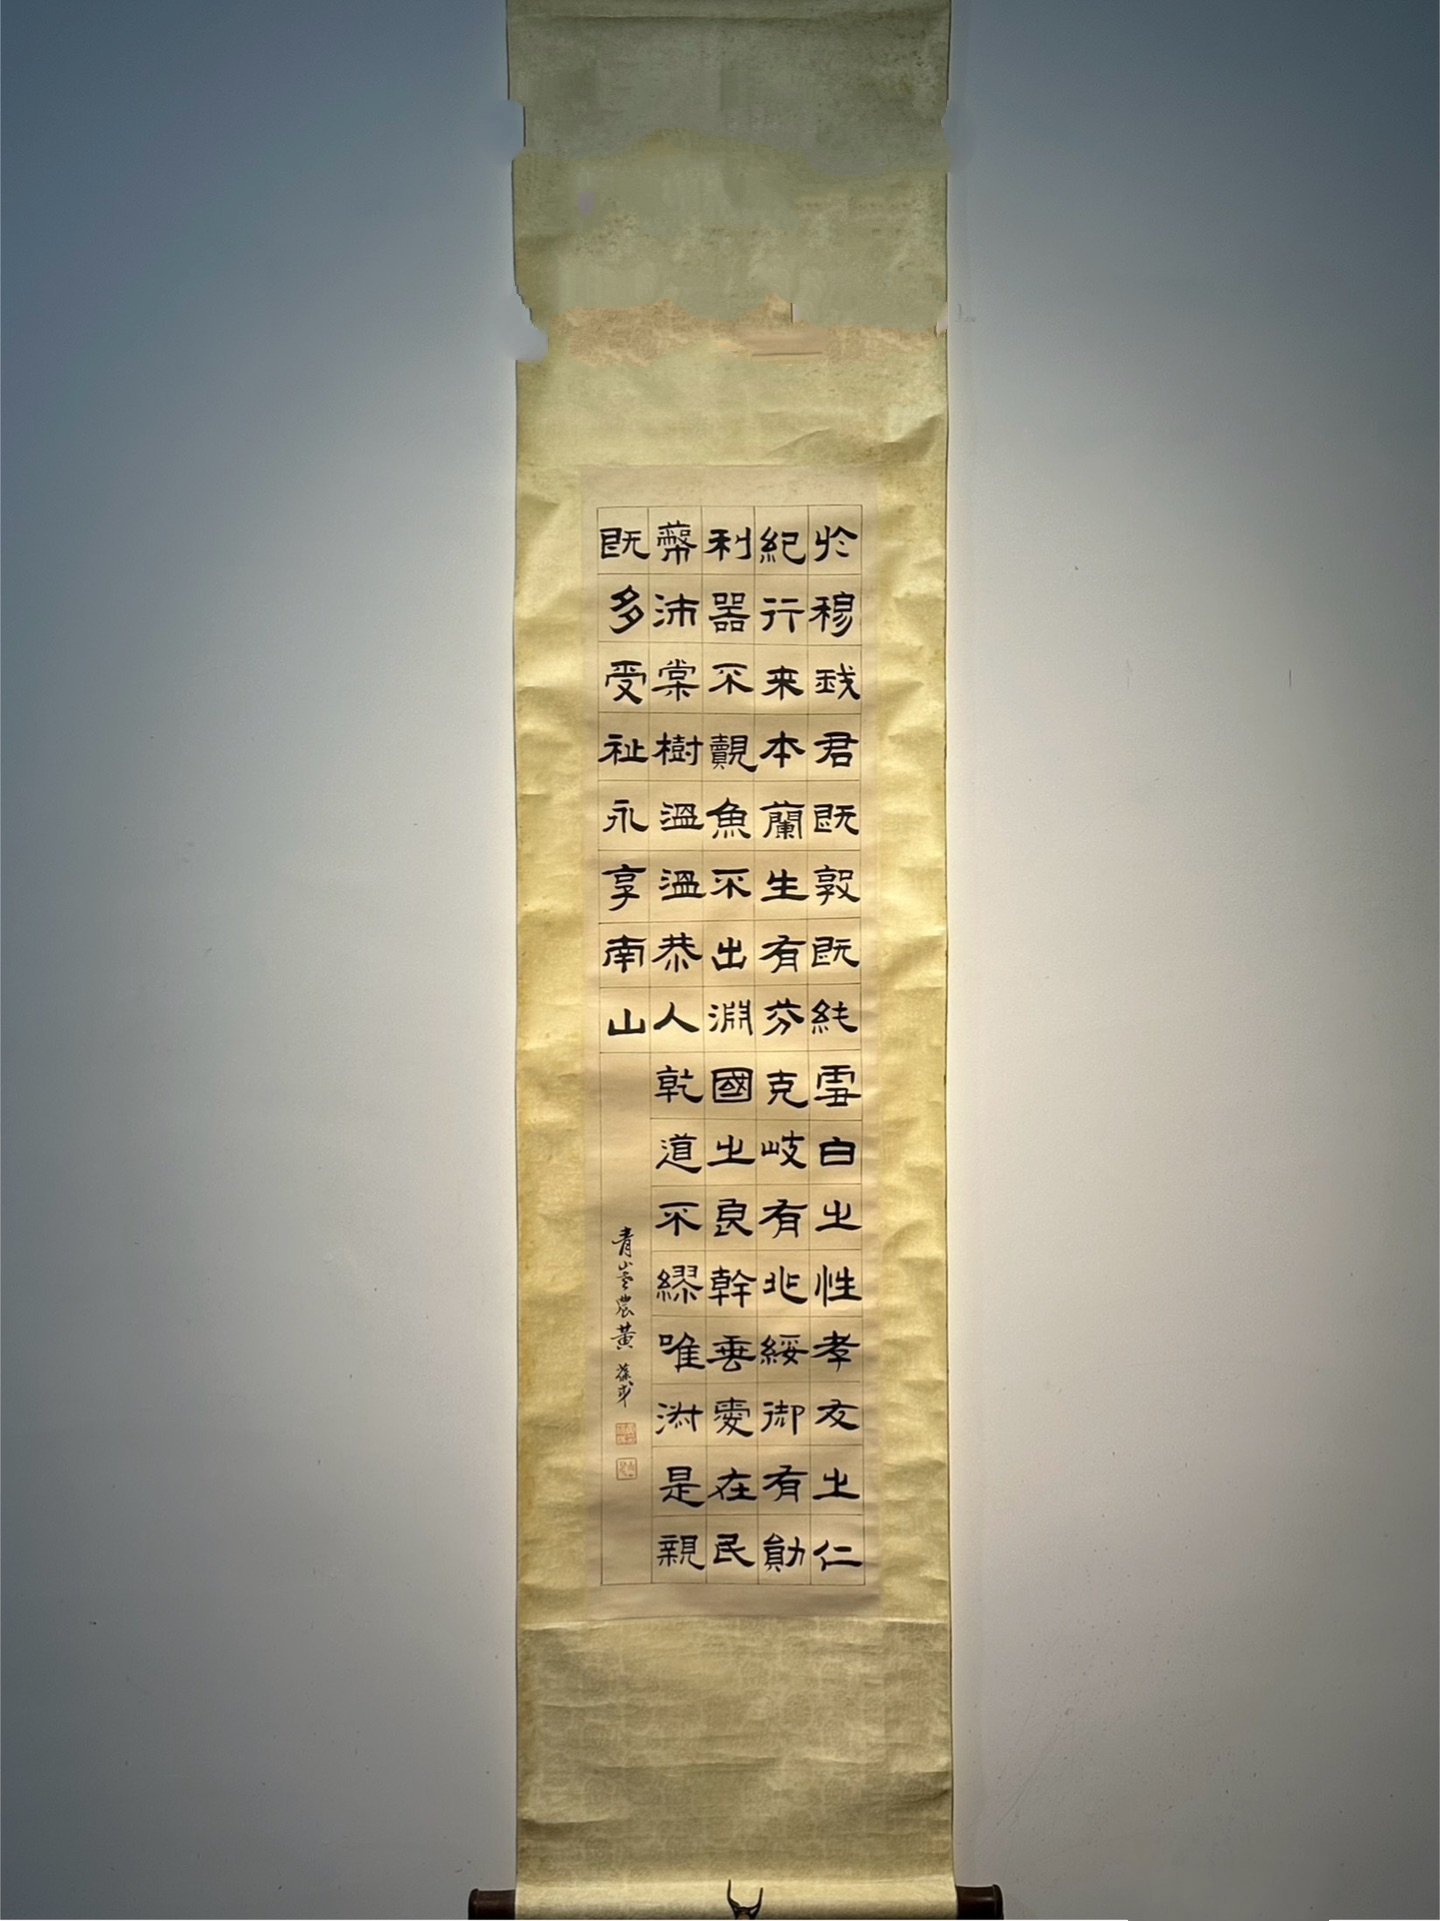 於穆我君既敦既純雪白之性孝友之仁
紀行来本蘭生有芬克岐有兆綏御有勛
利器不覿魚不出淵國之良幹垂愛在民
蔽沛棠樹溫溫恭人乾道不繆唯淑是親
既多受祉永享南山
青山農黃葆戉